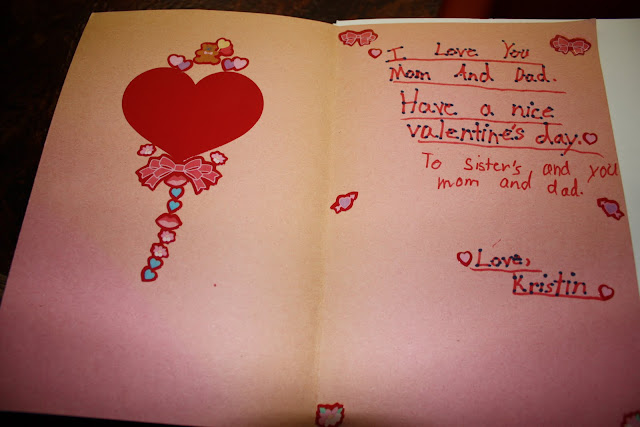 I Love You
Mom And Dad.
Have a nice
valentine's day.
To Sister's and you
mom and dad.
Love,
Kristin